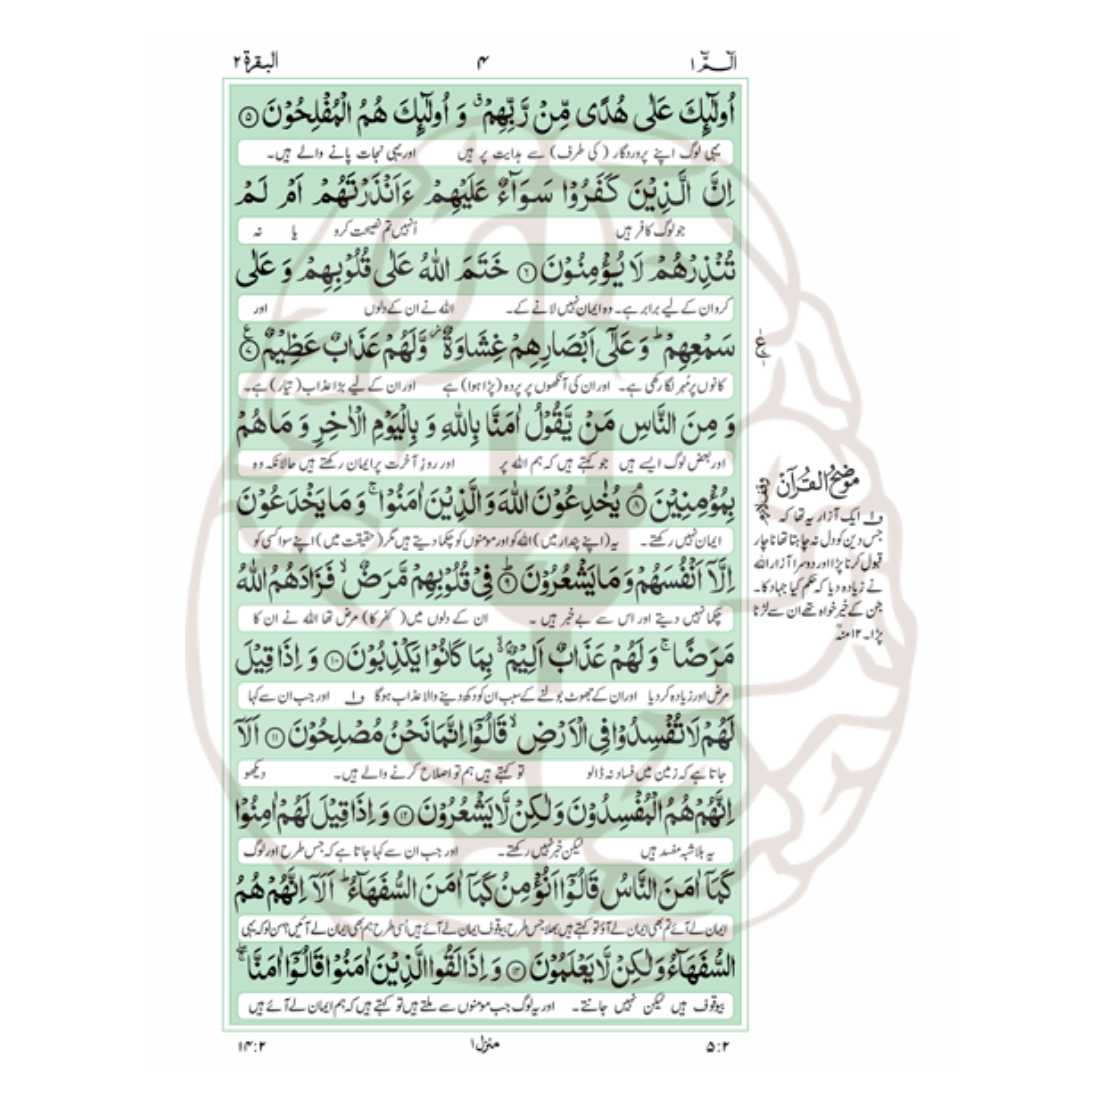 الٓـمّٓ ۱ ۴ البقرة ۲
اُولٰٓئِكَ عَلٰى هُدًى مِّنْ رَّبِّهِمْ ۗ وَ اُولٰٓئِكَ هُمُ الْمُفْلِحُوْنَ ۵
یہی لوگ اپنے پروردگار (کی طرف) سے ہدایت پر ہیں اور یہی نجات پانے والے ہیں۔
اِنَّ الَّذِيْنَ كَفَرُوْا سَوَآءٌ عَلَيْهِمْ ءَاَنْذَرْتَهُمْ اَمْ لَمْ
جو لوگ کافر ہیں اُنہیں تم نصیحت کرو یا نہ
تُنْذِرْهُمْ لَا يُؤْمِنُوْنَ ۶ خَتَمَ اللّٰهُ عَلٰى قُلُوْبِهِمْ وَ عَلٰى
کرو ان کے لیے برابر ہے۔ وہ ایمان نہیں لانے کے۔ اللہ نے ان کے دلوں اور
سَمْعِهِمْ ؕ وَ عَلٰٓى اَبْصَارِهِمْ غِشَاوَةٌ ؗ وَّلَهُمْ عَذَابٌ عَظِيْمٌ ۷ ع
کانوں پر مُہر لگا رکھی ہے۔ اور ان کی آنکھوں پر پردہ (پڑا ہوا) ہے اور ان کے لیے بڑا عذاب (تیار) ہے۔
وَ مِنَ النَّاسِ مَنْ يَّقُوْلُ اٰمَنَّا بِاللّٰهِ وَ بِالْيَوْمِ الْاٰخِرِ وَ مَا هُمْ
اور بعض لوگ ایسے ہیں جو کہتے ہیں کہ ہم اللہ پر اور روزِ آخرت پر ایمان رکھتے ہیں حالانکہ وہ
بِمُؤْمِنِيْنَ ۘ ۸ يُخٰدِعُوْنَ اللّٰهَ وَ الَّذِيْنَ اٰمَنُوْا ۚ وَ مَا يَخْدَعُوْنَ
ایمان نہیں رکھتے۔ یہ (اپنے پندار میں) اللہ کو اور مومنوں کو چکما دیتے ہیں مگر (حقیقت میں) اپنے سوا کسی کو
اِلَّاۤ اَنْفُسَهُمْ وَ مَا يَشْعُرُوْنَ ؕ ۹ فِيْ قُلُوْبِهِمْ مَّرَضٌ ۙ فَزَادَهُمُ اللّٰهُ
چکما نہیں دیتے اور اس سے بے خبر ہیں۔ ان کے دلوں میں (کفر کا) مرض تھا اللہ نے ان کا
مَرَضًا ۚ وَ لَهُمْ عَذَابٌ اَلِيْمٌۢ ۙ بِمَا كَانُوْا يَكْذِبُوْنَ ۱۰ وَ اِذَا قِيْلَ
مرض اور زیادہ کر دیا اور ان کے جھوٹ بولنے کے سبب ان کو دکھ دینے والا عذاب ہوگا ف۱ اور جب ان سے کہا
لَهُمْ لَا تُفْسِدُوْا فِي الْاَرْضِ ۙ قَالُوْۤا اِنَّمَا نَحْنُ مُصْلِحُوْنَ ۱۱ اَلَاۤ
جاتا ہے کہ زمین میں فساد نہ ڈالو تو کہتے ہیں ہم تو اصلاح کرنے والے ہیں۔ دیکھو
اِنَّهُمْ هُمُ الْمُفْسِدُوْنَ وَ لٰكِنْ لَّا يَشْعُرُوْنَ ۱۲ وَ اِذَا قِيْلَ لَهُمْ اٰمِنُوْا
یہ بلاشبہ مفسد ہیں لیکن خبر نہیں رکھتے۔ اور جب ان سے کہا جاتا ہے کہ جس طرح اور لوگ
كَمَاۤ اٰمَنَ النَّاسُ قَالُوْۤا اَنُؤْمِنُ كَمَاۤ اٰمَنَ السُّفَهَآءُ ؕ اَلَاۤ اِنَّهُمْ هُمُ
ایمان لے آئے تم بھی ایمان لے آؤ تو کہتے ہیں بھلا جس طرح بیوقوف ایمان لے آئے ہیں اُسی طرح ہم بھی ایمان لے آئیں؟ سن لو کہ یہی
السُّفَهَآءُ وَ لٰكِنْ لَّا يَعْلَمُوْنَ ۱۳ وَ اِذَا لَقُوا الَّذِيْنَ اٰمَنُوْا قَالُوْۤا اٰمَنَّا ۖۚ
بیوقوف ہیں لیکن نہیں جانتے۔ اور یہ لوگ جب مومنوں سے ملتے ہیں تو کہتے ہیں کہ ہم ایمان لے آئے ہیں
۵:۲ منزل ۱ ۱۴:۲
ع
موضح القرآن
وقف لازم
ف۱ ایک آزار یہ تھا کہ
جس دین کو دل نہ چاہتا تھا ناچار
قبول کرنا پڑا اور دوسرا آزار اللہ
نے زیادہ دیا کہ حکم کیا جہاد کا۔
جن کے خیر خواہ تھے ان سے لڑنا
پڑا۔ ۱۲ منہ